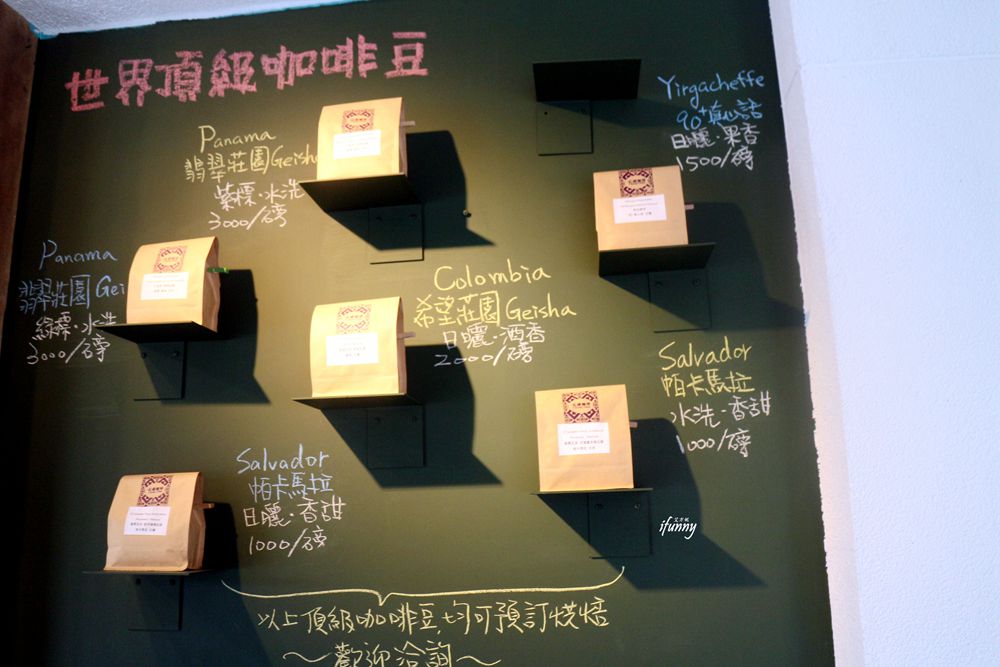 世界頂級咖啡豆
Panama
翡翠莊園Geisha
紫標·水洗
3000/磅
Yirgacheffe
90+真心話
日曬·果香
1500/磅
Panama
翡翠莊園Gei
綠標·水洗
3000/磅
Colombia
希望莊園Geisha
日曬·酒香
2000/磅
Salvador
帕卡馬拉
水洗·香甜
1000/磅
Salvador
帕卡馬拉
日曬·香甜
1000/磅
以上頂級咖啡豆,均可預訂烘焙
~歡迎洽詢~
ifunny